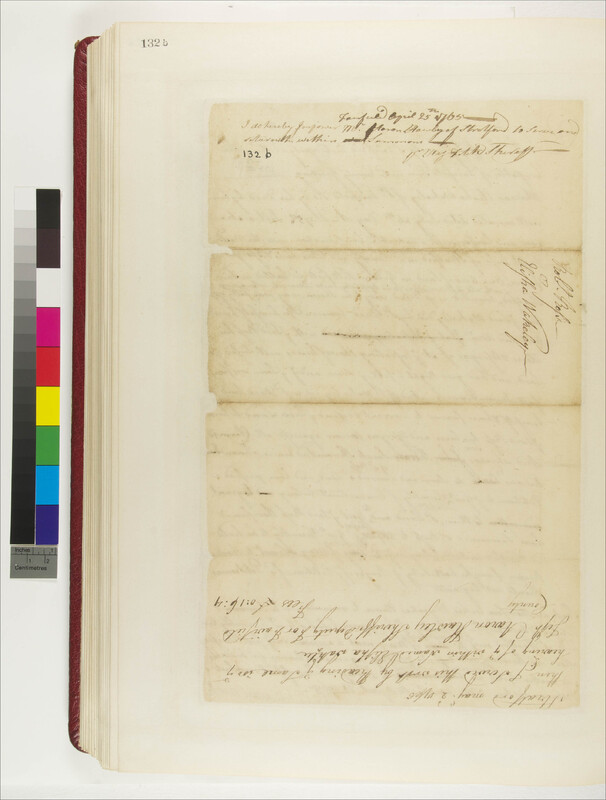 132b
Fairfield April 25th 1765
I do hereby Impower Mr. Aaron Hawley of Stratford to Serve and
return the within Summons
132 b
Elisha Wakeley
Stratford may 2 1765
then I Served this writ by Reading ye Same in ye
hearing of ye within Named Elisha
Test Aaron Hawley Sheriffs Deputy for Fairfield
County
Fees £0:1:6:4
Inches
1
2
Centimetres